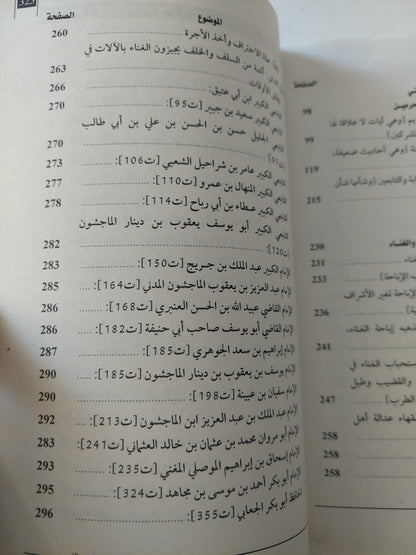 323
الموضوع الصفحة
علة الاحتراف وأخذ الأجرة 260
أئمة من السلف والخلف يجيزون الغناء بالآلات في
الأوقات 263
التابعي الكبير ابن أبي عتيق: 266
التابعي الكبير سعيد بن جبير [ت95]: 270
التابعي الجليل حسن بن الحسن بن علي بن أبي طالب
270
التابعي الكبير عامر بن شراحيل الشعبي [ت106]: 273
التابعي الكبير المنهال بن عمرو [ت110]: 277
التابعي الكبير عطاء بن أبي رباح [ت114]: 278
التابعي الكبير أبو يوسف يعقوب بن دينار الماجشون
[ت120]: 282
الإمام الكبير عبد الملك بن جريج [ت150]: 283
الإمام عبد العزيز بن يعقوب الماجشون المدني [ت164]: 285
الإمام القاضي عبيد الله بن الحسن العنبري [ت168]: 286
الإمام القاضي أبو يوسف صاحب أبي حنيفة [ت182]: 286
الإمام إبراهيم بن سعد الجوهري [ت185]: 287
الإمام يوسف بن يعقوب بن دينار الماجشون [ت185]: 290
الإمام سفيان بن عيينة [ت198]: 290
الإمام عبد الملك بن عبد العزيز ابن الماجشون [ت213]: 292
الإمام أبو مروان محمد بن عثمان بن خالد العثماني [ت241]: 283
الإمام إسحاق بن إبراهيم الموصلي المغني [ت235]: 293
الإمام أبو بكر أحمد بن موسى بن مجاهد [ت324]: 295
الحافظ أبو بكر الجعابي [ت355]: 296
الصفحة
98
[وهي آيات لا علاقة لها
99
[وهي أحاديث ضعيفة،
119
والتابعين [وشأنها شأن
215
والغناء 230
233
الإباحة لغير الأشراف
236
إباحة الغناء،
241
استحباب الغناء في
والقضيب وطبل
الطرب] 247
عدالة أهل
258
258